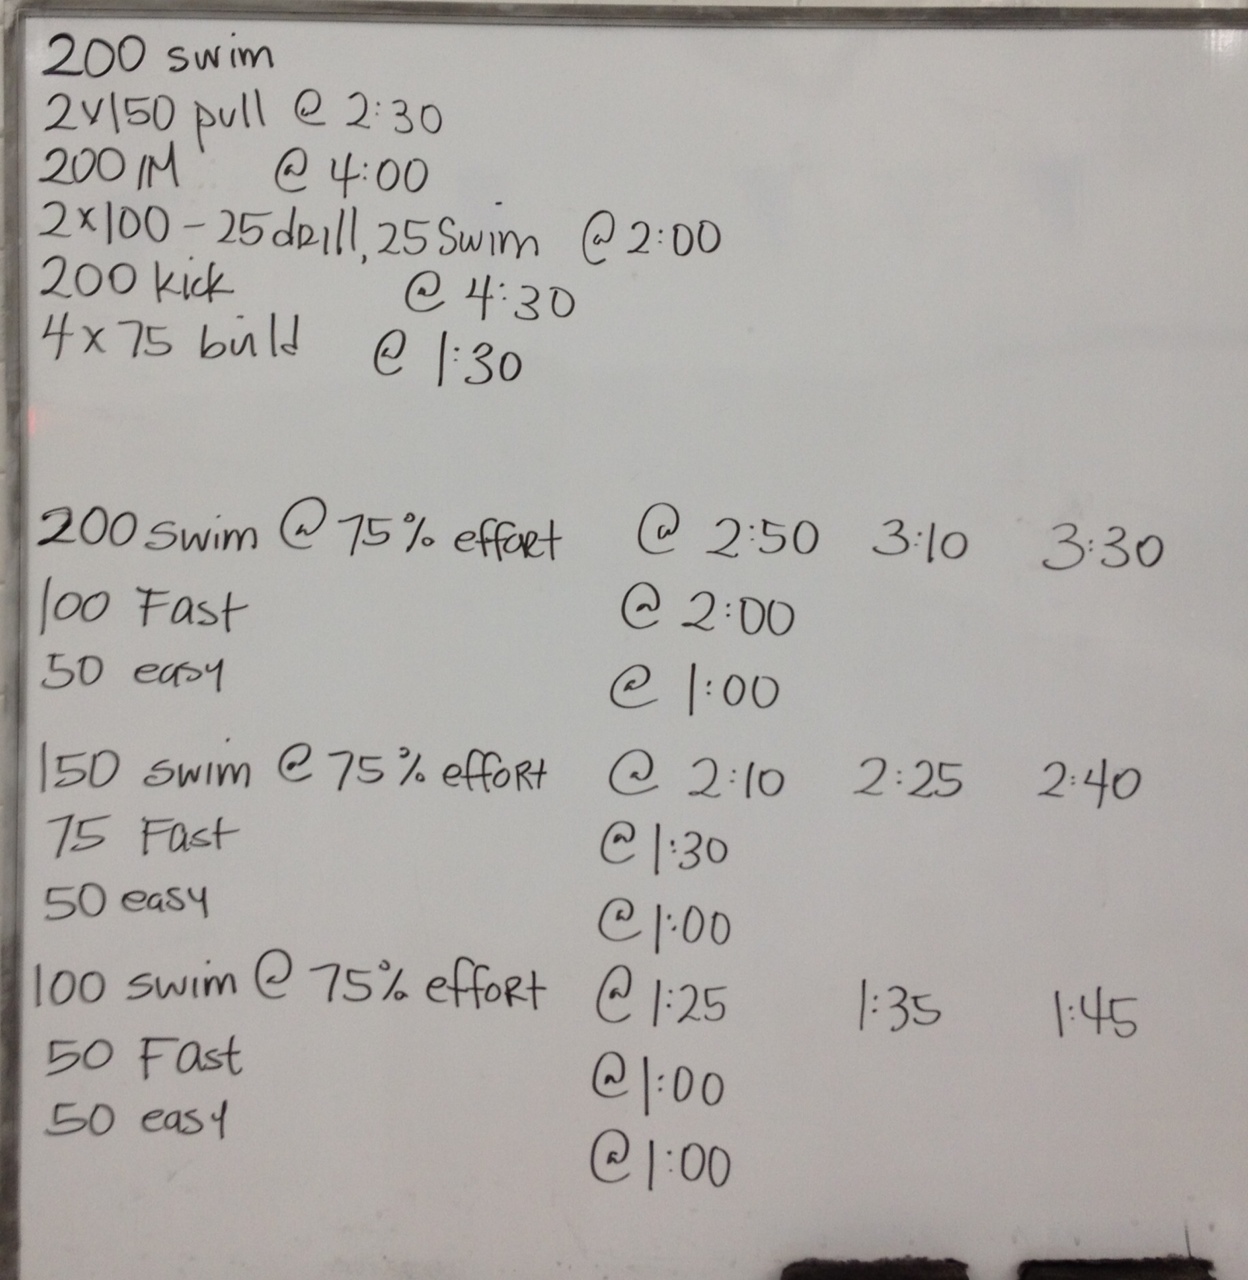 200 swim
2x150 pull @ 2:30
200 IM @ 4:00
2x100 - 25 drill, 25 Swim @ 2:00
200 kick @ 4:30
4x75 build @ 1:30
200 swim @ 75% effort @ 2:50 3:10 3:30
100 Fast @ 2:00
50 easy @ 1:00
150 swim @ 75% effort @ 2:10 2:25 2:40
75 Fast @ 1:30
50 easy @ 1:00
100 swim @ 75% effort @ 1:25 1:35 1:45
50 Fast @ 1:00
50 easy @ 1:00